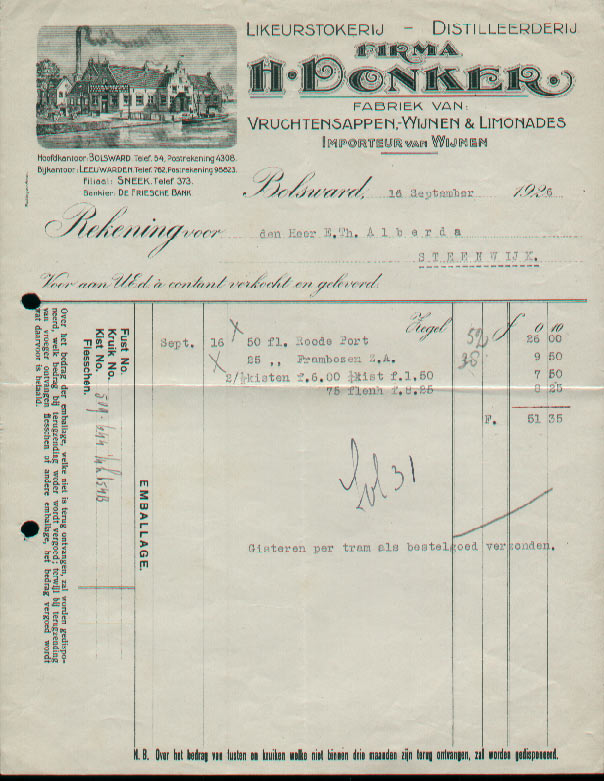 LIKEURSTOKERIJ – DISTILLEERDERIJ
FIRMA
H. DONKER.
FABRIEK VAN:
VRUCHTENSAPPEN,-WIJNEN & LIMONADES
IMPORTEUR VAN WIJNEN
Hoofdkantoor: BOLSWARD Telef. 54, Postrekening 4308.
Bijkantoor: LEEUWARDEN. Telef. 762, Postrekening 95823.
Filiaal: SNEEK. Telef 373.
Bankier: DE FRIESCHE BANK
Bolsward, 16 September 1926
Rekening voor den Heer E.Th. Alberda
STEENWIJK.
Voor aan UEd. à contant verkocht en geleverd.
Zegel f 0 10
Sept. 16 50 fl. Roode Port 52 26 00
25 ,, Frambozen Z.A. 38 9 50
2/½kisten f.6.00 ¼kist f.1,50 7 50
75 flenh f.8.25 8 25
F. 51 35
31
Gisteren per tram als bestelgoed verzonden.
Fust No.
Kruik No.
Kist No.
Flesschen.
EMBALLAGE.
Over het bedrag der emballage, welke niet is terug ontvangen, zal worden gedispo-
neerd, welk bedrag bij terugzending weder wordt vergoed; terwijl bij terugzending
van vroeger ontvangen flesschen of andere emballage, het bedrag vergoed wordt
wat daarvoor is betaald.
N. B. Over het bedrag van fusten en kruiken welke niet binnen drie maanden zijn terug ontvangen, zal worden gedisponeerd.